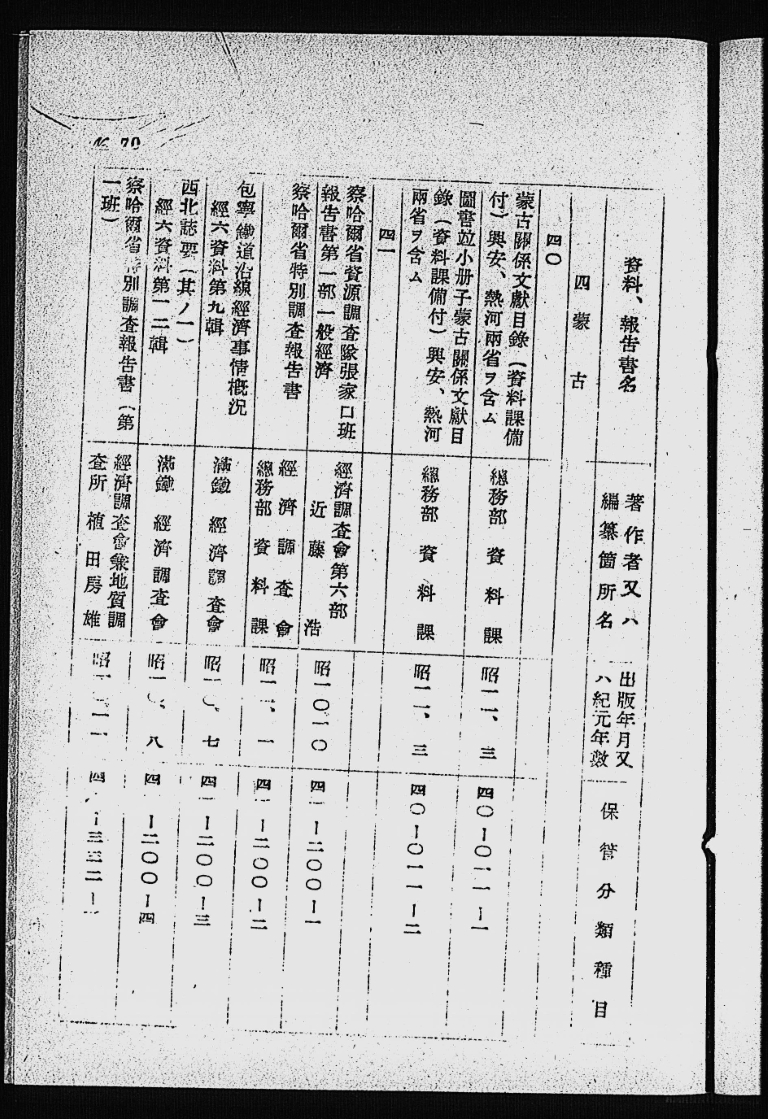 資料、報告書名
著作者又ハ
編纂箇所名
出版年月又
ハ紀元年數
保管分類種目
四蒙古
四〇
蒙古關係文獻目錄（資料課備
付）興安、熱河兩省ヲ含ム
總務部資料課
昭一一、三
四〇-〇一一-一
圖書竝小册子蒙古關係文獻目
錄（資料課備付）興安、熱河
兩省ヲ含ム
總務部資料課
昭一一、三
四〇-〇一一-二
四一
察哈爾省資源調査隊張家口班
報告書第一部一般經濟
經濟調査會第六部
近藤浩
昭一〇一〇
四一-二〇〇-一
察哈爾省特別調査報告書
經濟調査會
總務部資料課
昭一一、一
四一-二〇〇-二
包寧鐵道沿線經濟事情概況
經六資料第九輯
滿鐵經濟調査會
昭一〇、七
四一-二〇〇-三
西北誌要（其ノ一）
經六資料第一二輯
滿鐵經濟調査會
昭一〇、八
四一-二〇〇-四
察哈爾省特別調査報告書（第
一班）
經濟調査會兼地質調
査所植田房雄
昭一〇一一
四一-三三二-一